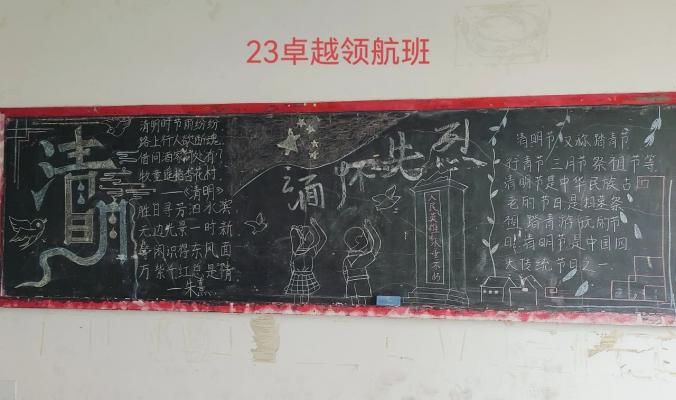 23卓越领航班
清明
清明时节雨纷纷,
路上行人欲断魂.
借问酒家何处有?
牧童遥指杏花村.
——《清明》
胜日寻芳泗水滨,
无边光景一时新.
等闲识得东风面
万紫千红总是
—朱熹
诵怀先烈
人民英雄永垂不朽
清明节又称踏青节
行青节三月节祭祖节等
清明节是中华民族古
老的节日是
祖踏青游玩的节
日清明节是中国四
大传统节日之一